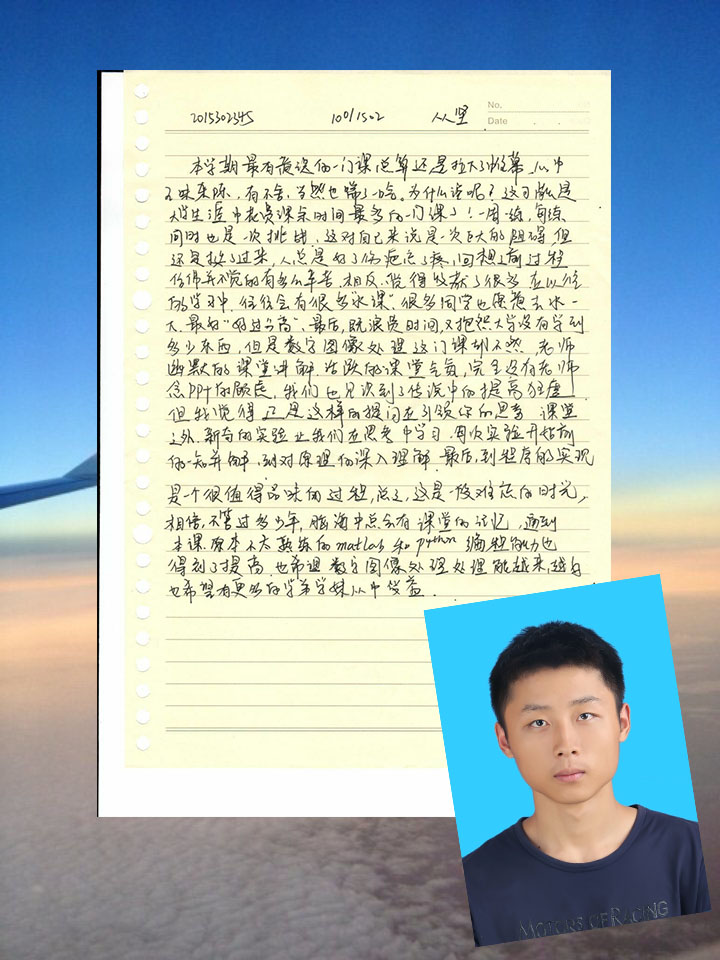 2015302345 10011502 从坚
No.
Date
本学期最有意议的一门课总算还是拉大了帷幕,心中
五味杂陈,有不舍,当然也喘了一口气。为什么说呢?这可能是
大学生涯中花费课余时间最多的一门课了!一周一练,每练
同时也是一次挑战,这对自己来说是一次巨大的阻碍,但
还是挺了过来,人总是好了伤疤忘了疼,回想之前过程
仿佛并不觉的有多么辛苦,相反,觉得收获了很多,在以往
的学习中,往往会有很多“水课”,很多同学也愿意去水一
水,最好“好过分高”,最后,既浪费时间,又抱怨大学没有学到
多少东西,但是数字图像处理这门课却不然,老师
幽默的课堂讲解,活跃的课堂气氛,完全没有老师
念PPT的顾虑,我们也见识到了传说中的提问狂魔
但我觉得正是这样的提问在引领你的思考,课堂
之外,新奇的实验让我们在思考中学习,每次实验开始前
的一知半解,到对原理的深入理解,最后,到程序的实现
是个很值得品味的过程,总之,这是一段难忘的时光,
相信,不管过多少年,脑海中总会有课堂的记忆,通过
本课,原本不太熟练的matlab和python编程能力也
得到了提高,也希望数字图像处理处理能越来越好
也希望有更多的学弟学妹从中受益.
MOTORS OF RACING